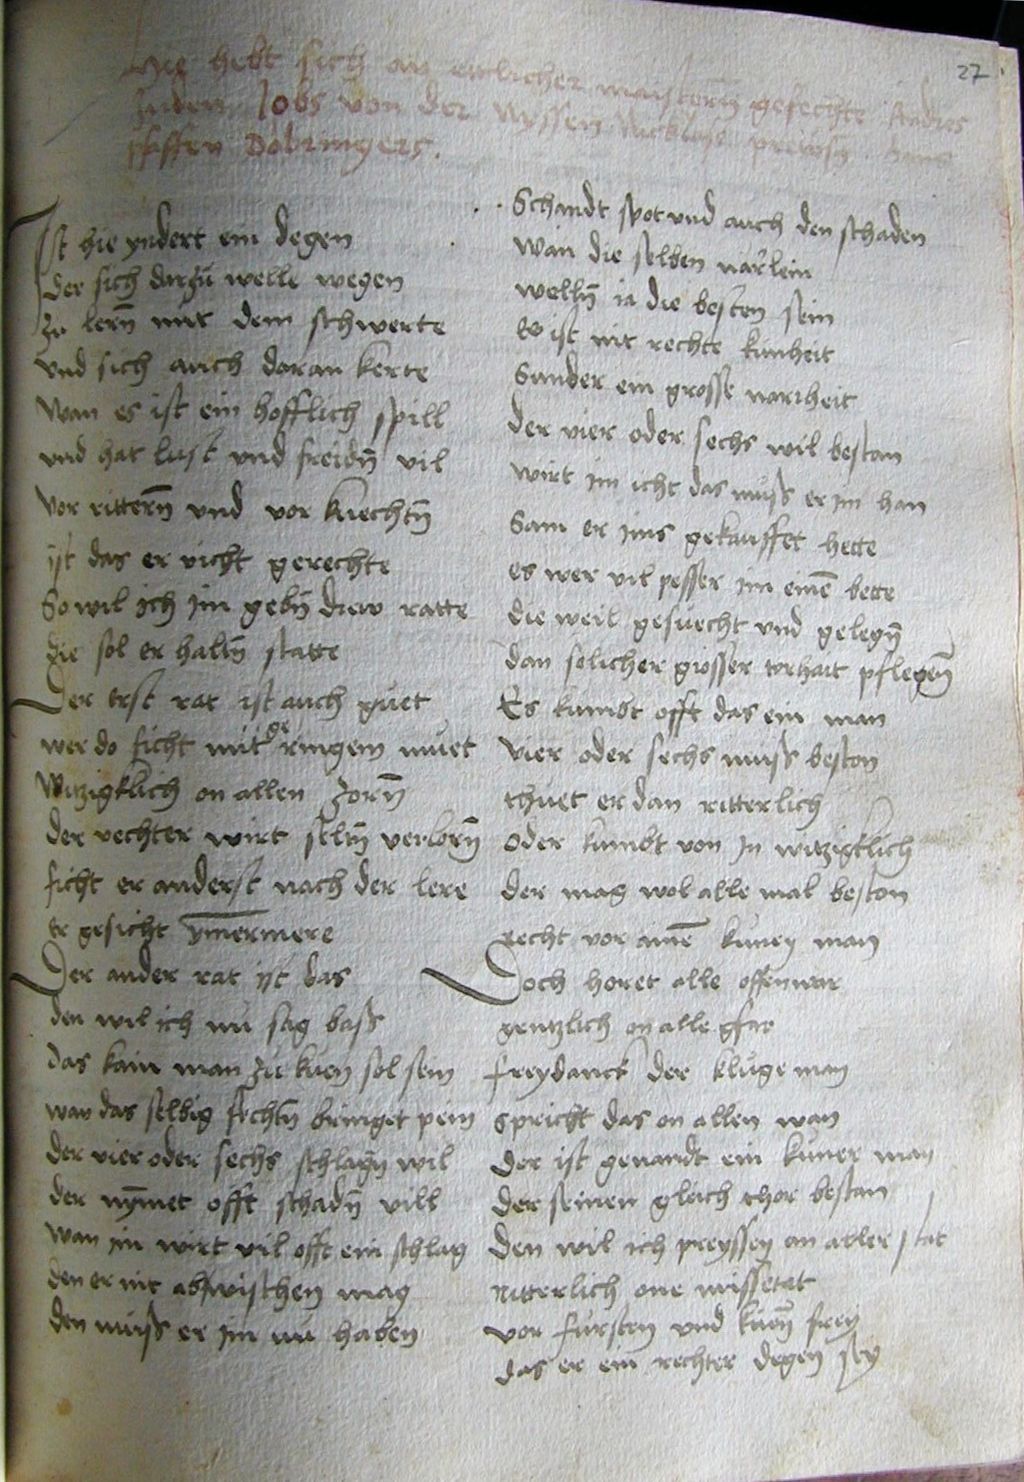 27
Hie hebt sich an ettlicher maistern gefechte Andres
Juden Jobs von der Nyssen Nicklaus prewsn hans
pfaffen Dobringers.
Ist hie yndert ein degen
der sich darzu welle wegen
zu lern̄ mit dem schwerte
vnd sich auch daran kerte
Wan es ist ein hofflich spill
vnd hat lust vnd freidn̄ vil
vor rittern̄ vnd vor knechtn̄
ist das er vicht gerechte
So wil ich im gebn̄ drew ratte
die sol er haltn̄ statte
Der erst rat ist auch guet
wer do ficht mit geringem muet
Witzigklich on allen zorn̄
der vechter wirt seltn̄ verlorn̄
ficht er anderst nach der lere
er gesicht ym̄ermere
Der ander rat ist das
den wil ich nu sag bass
das kain man zu kuen sol sein
wan das selbig fechtn̄ bringet pein
der vier oder sechs schlagn̄ wil
der nȳmet offt schadn̄ vill
wan im wirt vil offt ein schlag
den er nit abwischen mag
den muss er im nu haben
Schandt spot vnd auch den schaden
wan die selben narlein
welln̄ ia die besten sein
Es ist nit rechte kunheit
Sunder ein grosse narrheit
der vier oder sechs wil bestan
wirt im icht das muss er im han
Sam er ims gekauffet hette
es wer vil pesser im einē bette
die weil gesuecht vnd gelegn̄
dan solicher grosser torhait pflegen̄
Es kumbt offt das ein man
vier oder sechs muss beston
thuet er dan ritterlich
oder kumbt von in witzigklich
der mag wol alle mal beston
recht vor ainē kunen man
Doch horet alle offenwar
gentzlich on alle gfar
freydanck der kluge man
spricht das on allen wan
der ist genandt ein kuner man
der seinen gleich thor bestan
den wil ich preyssen an aller stat
ritterlich one missetat
vor fursten vnd kuen̄ frey
das er ein rechter degen sey